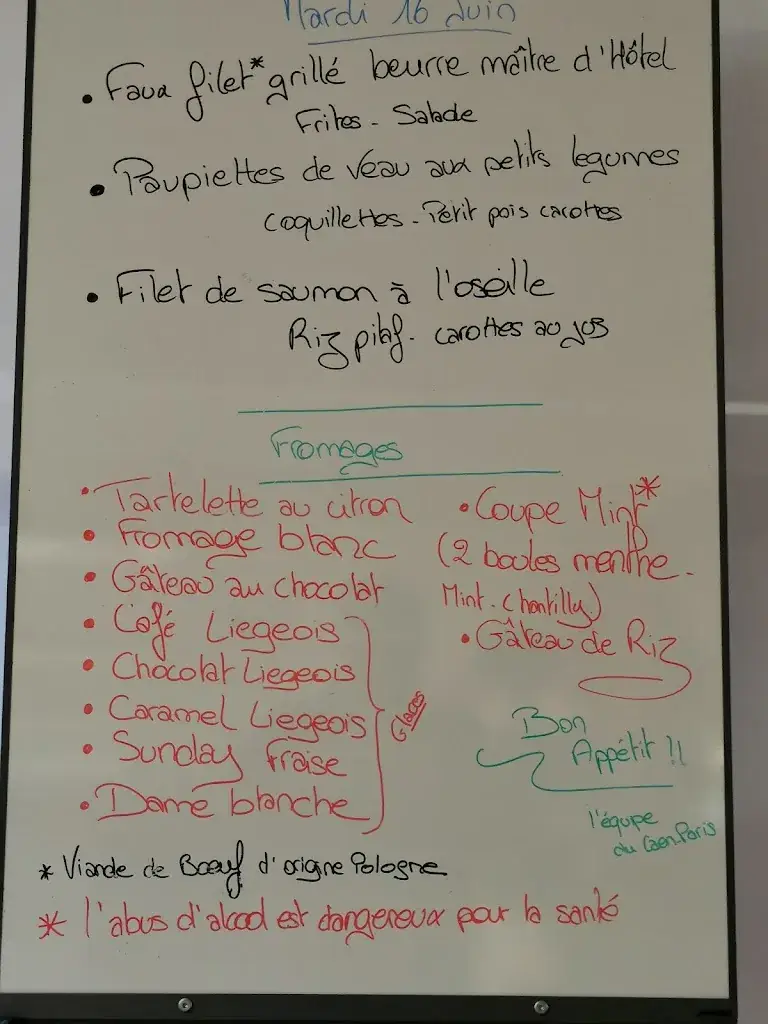 Mardi 16 Juin
• Faux filet* grillé beurre maître d'Hôtel
Frites - Salade
• Paupiettes de veau aux petits legumes
coquillettes - Petit pois carottes
• Filet de saumon à l'oseille
Riz pilaf - carottes au jus
Fromages
• Tartelette au citron
• Fromage blanc
• Gâteau au chocolat
• Café Liegeois
• Chocolat Liegeois
• Caramel Liegeois
• Sunday Fraise
• Dame blanche
Glaces
• Coupe Mint*
(2 boules menthe -
Mint - Chantilly)
• Gâteau de Riz
Bon
Appétit !!
l'équipe
du Caen.Paris
* Viande de Bœuf d'origne Pologne
* l'abus d'alcool est dangereux pour la santé